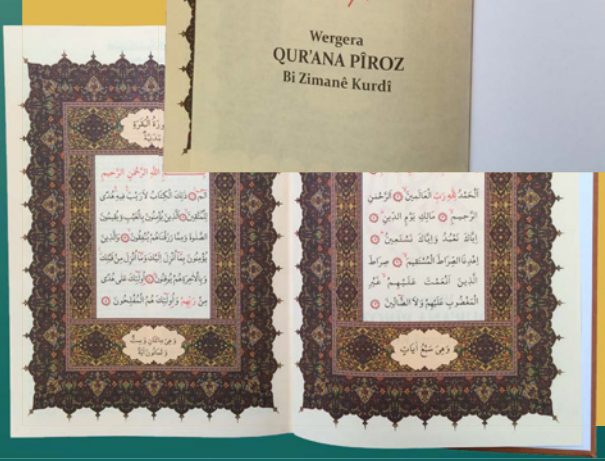 Wergera
QUR'ANA PÎROZ
Bi Zimanê Kurdî
اَلْحَمْدُ لِلّٰهِ رَبِّ الْعَالَمِينَ اَلرَّحْمٰنِ
الرَّحِيمِ مَالِكِ يَوْمِ الدِّينِ
اِيَّاكَ نَعْبُدُ وَاِيَّاكَ نَسْتَعِينُ
اِهْدِنَا الصِّرَاطَ الْمُسْتَقِيمَ صِرَاطَ
الَّذِينَ اَنْعَمْتَ عَلَيْهِمْ غَيْرِ
الْمَغْضُوبِ عَلَيْهِمْ وَلَا الضَّالِّينَ
وَهِىَ سَبْعُ اٰيَاتٍ
سُورَةُ الْبَقَرَةِ
اللّٰهِ الرَّحْمٰنِ الرَّحِيمِ
الٓمٓ ذٰلِكَ الْكِتَابُ لَا رَيْبَ فِيهِ هُدًى
لِلْمُتَّقِينَ اَلَّذِينَ يُؤْمِنُونَ بِالْغَيْبِ وَيُقِيمُونَ
الصَّلٰوةَ وَمِمَّا رَزَقْنَاهُمْ يُنْفِقُونَ وَالَّذِينَ
يُؤْمِنُونَ بِمَا اُنْزِلَ اِلَيْكَ وَمَا اُنْزِلَ مِنْ قَبْلِكَ
وَبِالْاٰخِرَةِ هُمْ يُوقِنُونَ اُولٰئِكَ عَلٰى هُدًى
مِنْ رَبِّهِمْ وَاُولٰئِكَ هُمُ الْمُفْلِحُونَ
وَهِىَ مِائَتَانِ وَسِتٌّ
وَثَمَانُونَ اٰيَةً